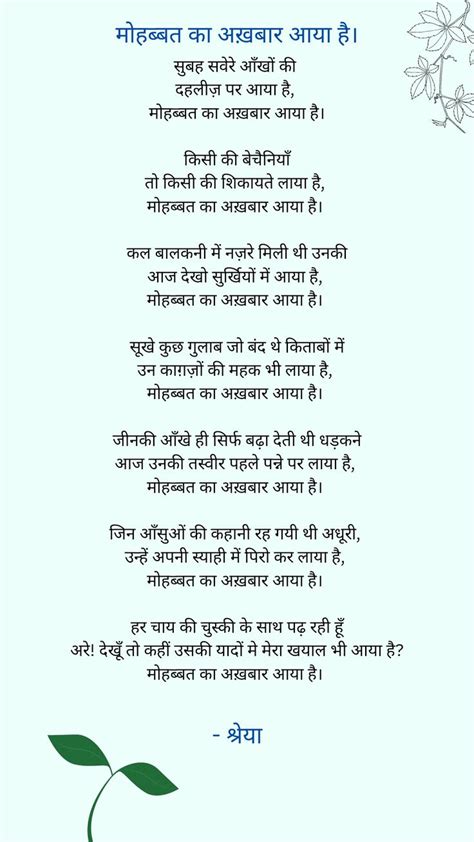 मोहब्बत का अख़बार आया है।
सुबह सवेरे आँखों की
दहलीज़ पर आया है,
मोहब्बत का अख़बार आया है।
किसी की बेचैनियाँ
तो किसी की शिकायते लाया है,
मोहब्बत का अख़बार आया है।
कल बालकनी में नज़रे मिली थी उनकी
आज देखो सुर्खियों में आया है,
मोहब्बत का अख़बार आया है।
सूखे कुछ गुलाब जो बंद थे किताबों में
उन काग़ज़ों की महक भी लाया है,
मोहब्बत का अख़बार आया है।
जीनकी आँखे ही सिर्फ बढ़ा देती थी धड़कने
आज उनकी तस्वीर पहले पन्ने पर लाया है,
मोहब्बत का अख़बार आया है।
जिन आँसुओं की कहानी रह गयी थी अधूरी,
उन्हें अपनी स्याही में पिरो कर लाया है,
मोहब्बत का अख़बार आया है।
हर चाय की चुस्की के साथ पढ़ रही हूँ
अरे! देखूँ तो कहीं उसकी यादों मे मेरा खयाल भी आया है?
मोहब्बत का अख़बार आया है।
- श्रेया